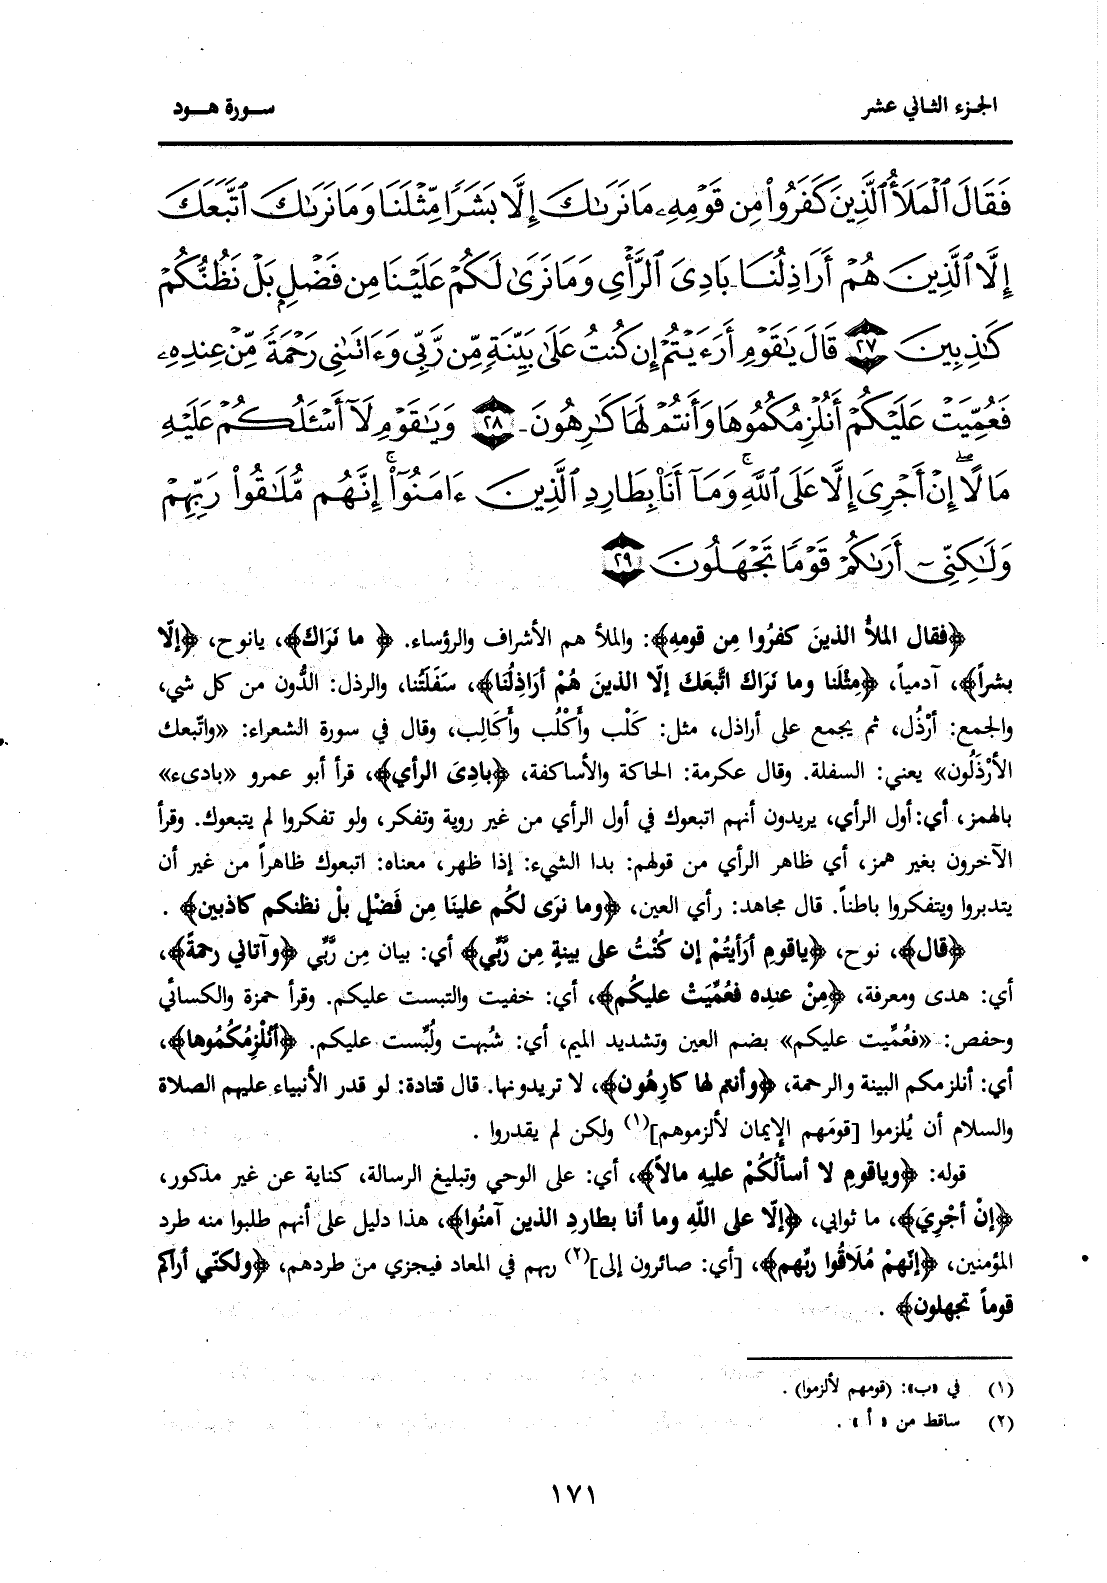 الجزء الثاني عشر
سورة هود
فَقَالَ ٱلْمَلَأُ ٱلَّذِينَ كَفَرُوا۟ مِن قَوْمِهِۦ مَا نَرَىٰكَ إِلَّا بَشَرًا مِّثْلَنَا وَمَا نَرَىٰكَ ٱتَّبَعَكَ
إِلَّا ٱلَّذِينَ هُمْ أَرَاذِلُنَا بَادِىَ ٱلرَّأْىِ وَمَا نَرَىٰ لَكُمْ عَلَيْنَا مِن فَضْلٍۭ بَلْ نَظُنُّكُمْ
كَٰذِبِينَ ۝٢٧ قَالَ يَٰقَوْمِ أَرَءَيْتُمْ إِن كُنتُ عَلَىٰ بَيِّنَةٍ مِّن رَّبِّى وَءَاتَىٰنِى رَحْمَةً مِّنْ عِندِهِۦ
فَعُمِّيَتْ عَلَيْكُمْ أَنُلْزِمُكُمُوهَا وَأَنتُمْ لَهَا كَٰرِهُونَ ۝٢٨ وَيَٰقَوْمِ لَآ أَسْـَٔلُكُمْ عَلَيْهِ
مَالًا ۖ إِنْ أَجْرِىَ إِلَّا عَلَى ٱللَّهِ ۚ وَمَآ أَنَا۠ بِطَارِدِ ٱلَّذِينَ ءَامَنُوٓا۟ ۚ إِنَّهُم مُّلَٰقُوا۟ رَبِّهِمْ
وَلَٰكِنِّىٓ أَرَىٰكُمْ قَوْمًا تَجْهَلُونَ ۝٢٩
﴿فقال الملأُ الذينَ كفرُوا مِن قومِهِ﴾: والملأ هم الأشراف والرؤساء. ﴿ ما نَرَاكَ﴾، يانوح، ﴿إلّا
بشراً﴾، آدمياً، ﴿مِثْلَنا وما نَرَاكَ اتَّبعَكَ إلّا الذينَ هُمْ أرَاذِلُنَا﴾، سَفَلَتُنا، والرذل: الدُّون من كل شي،
والجمع: أرْذُل، ثم يجمع على أراذل، مثل: كَلْب وأَكْلُب وأَكَالِب، وقال في سورة الشعراء: «واتّبعك
الأرْذَلُون» يعني: السفلة. وقال عكرمة: الحاكة والأساكفة، ﴿بادِيَ الرأي﴾، قرأ أبو عمرو «بادىء»
بالهمز، أي: أول الرأي، يريدون أنهم اتبعوك في أول الرأي من غير روية وتفكر، ولو تفكروا لم يتبعوك. وقرأ
الآخرون بغير همز، أي ظاهر الرأي من قولهم: بدا الشيء: إذا ظهر، معناه: اتبعوك ظاهراً من غير أن
يتدبروا ويتفكروا باطناً. قال مجاهد: رأي العين، ﴿وما نرَى لكُم علينَا مِن فَضْلٍ بلْ نظنكم كاذبين﴾ .
﴿قال﴾، نوح، ﴿ياقومِ أرَأيتُمْ إن كُنْتُ على بينةٍ مِن رَّبِّي﴾ أي: بيان مِن رَّبِّي ﴿وآتاني رحمةً﴾،
أي: هدى ومعرفة، ﴿مِنْ عنده فعُمِّيَتْ عليكُم﴾، أي: خفيت والتبست عليكم. وقرأ حمزة والكسائي
وحفص: «فعُمِّيت عليكم» بضم العين وتشديد الميم، أي: شُبهت ولُبِّست عليكم. ﴿أنُلْزِمُكُمُوها﴾،
أي: أنلزمكم البينة والرحمة، ﴿وأنتم لها كارِهُون﴾، لا تريدونها. قال قتادة: لو قدر الأنبياء عليهم الصلاة
والسلام أن يُلزموا [قومَهم الإيمان لألزموهم](١) ولكن لم يقدروا .
قوله: ﴿وياقومِ لا أسألُكُمْ عليهِ مالاً﴾، أي: على الوحي وتبليغ الرسالة، كناية عن غير مذكور،
﴿إنْ أجْرِيَ﴾، ما ثوابي، ﴿إلّا على اللّهِ وما أنا بطاردِ الذين آمنُوا﴾، هذا دليل على أنهم طلبوا منه طرد
المؤمنين، ﴿إنّهمْ مُلَاقُوا ربِّهم﴾، [أي: صائرون إلى](٢) ربهم في المعاد فيجزي من طردهم، ﴿ولكنّي أراكم
قوماً تجهلون﴾ .
(١) في «ب»: (قومهم لألزموا) .
(٢) ساقط من « أ » .
١٧١